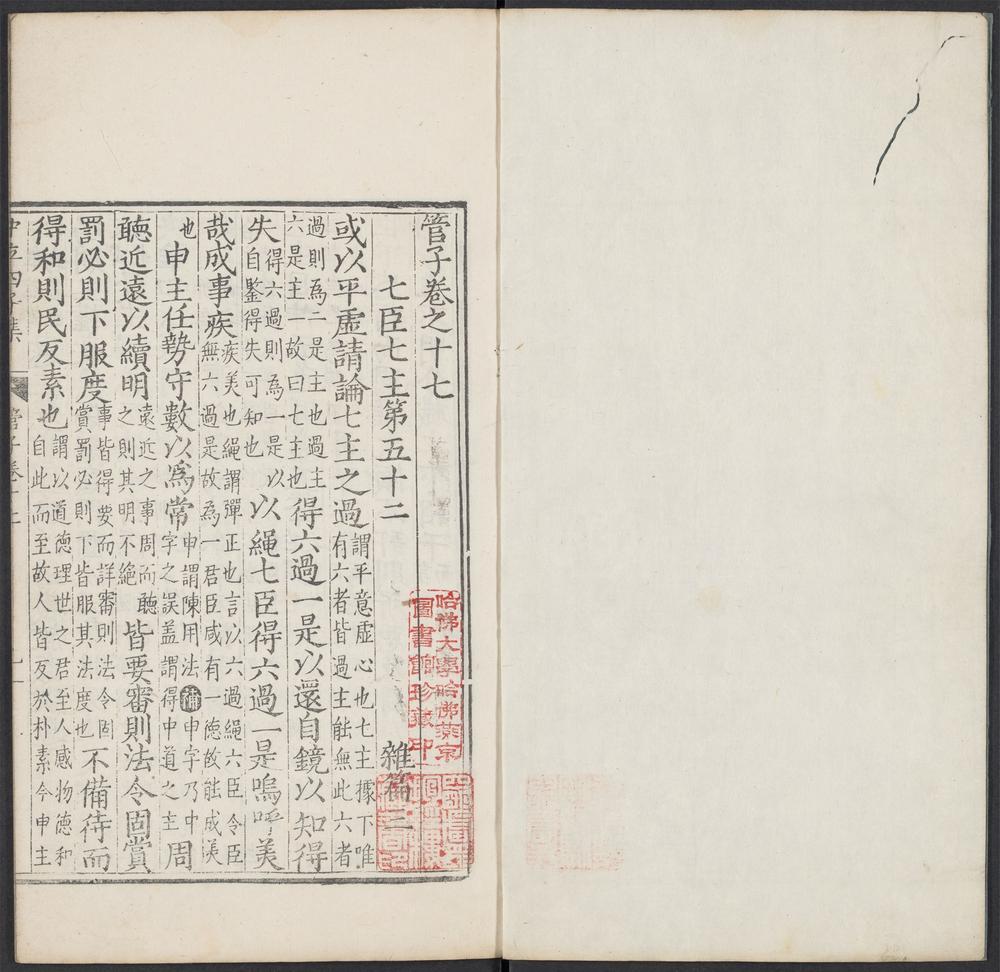 管子卷之十七
七臣七主第五十二　雜篇三
或以平虛請論七主之過謂平意虛心也七主據下唯有六者皆過主能無此六者
過則爲二是主也過主六是主一故曰七主也得六過一是以還自鏡以知得
失得六過則爲一是以自鑒得失可知也以繩七臣得六過一是嗚呼美
哉成事疾疾美也繩謂彈正也言以六過繩六臣令臣無六過是故爲一君臣咸有一德故能成美
也申主任勢守數以爲常申謂陳用法補申字乃中字之誤蓋謂得中道之主周
聽近遠以續明遠近之事周而聽之則其明不絕皆要審則法令固賞
罰必則下服度事皆得要而詳審則法令固賞罰必則下皆服其法度也不備待而
得和則民反素也謂以道德理世之君至人感物德和自此而至故人皆反於朴素今申主
哈佛大學哈佛燕京
圖書館珍藏印